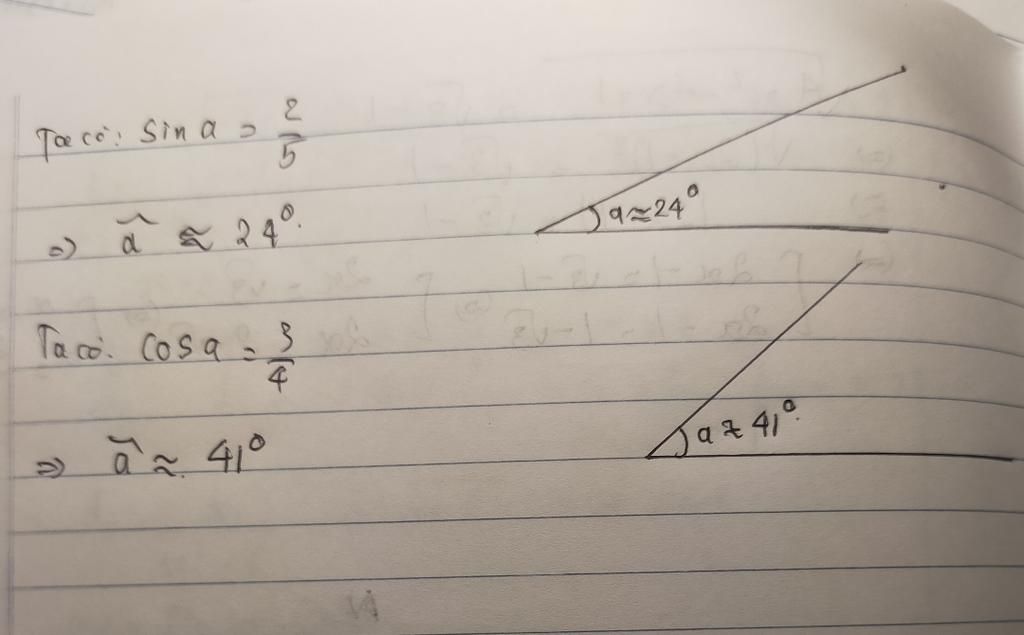 Ta có: sin a = 2/5
=> â ≈ 24°.
a ≈ 24°
Ta có: cos a = 3/4
=> â ≈ 41°
a ≈ 41°